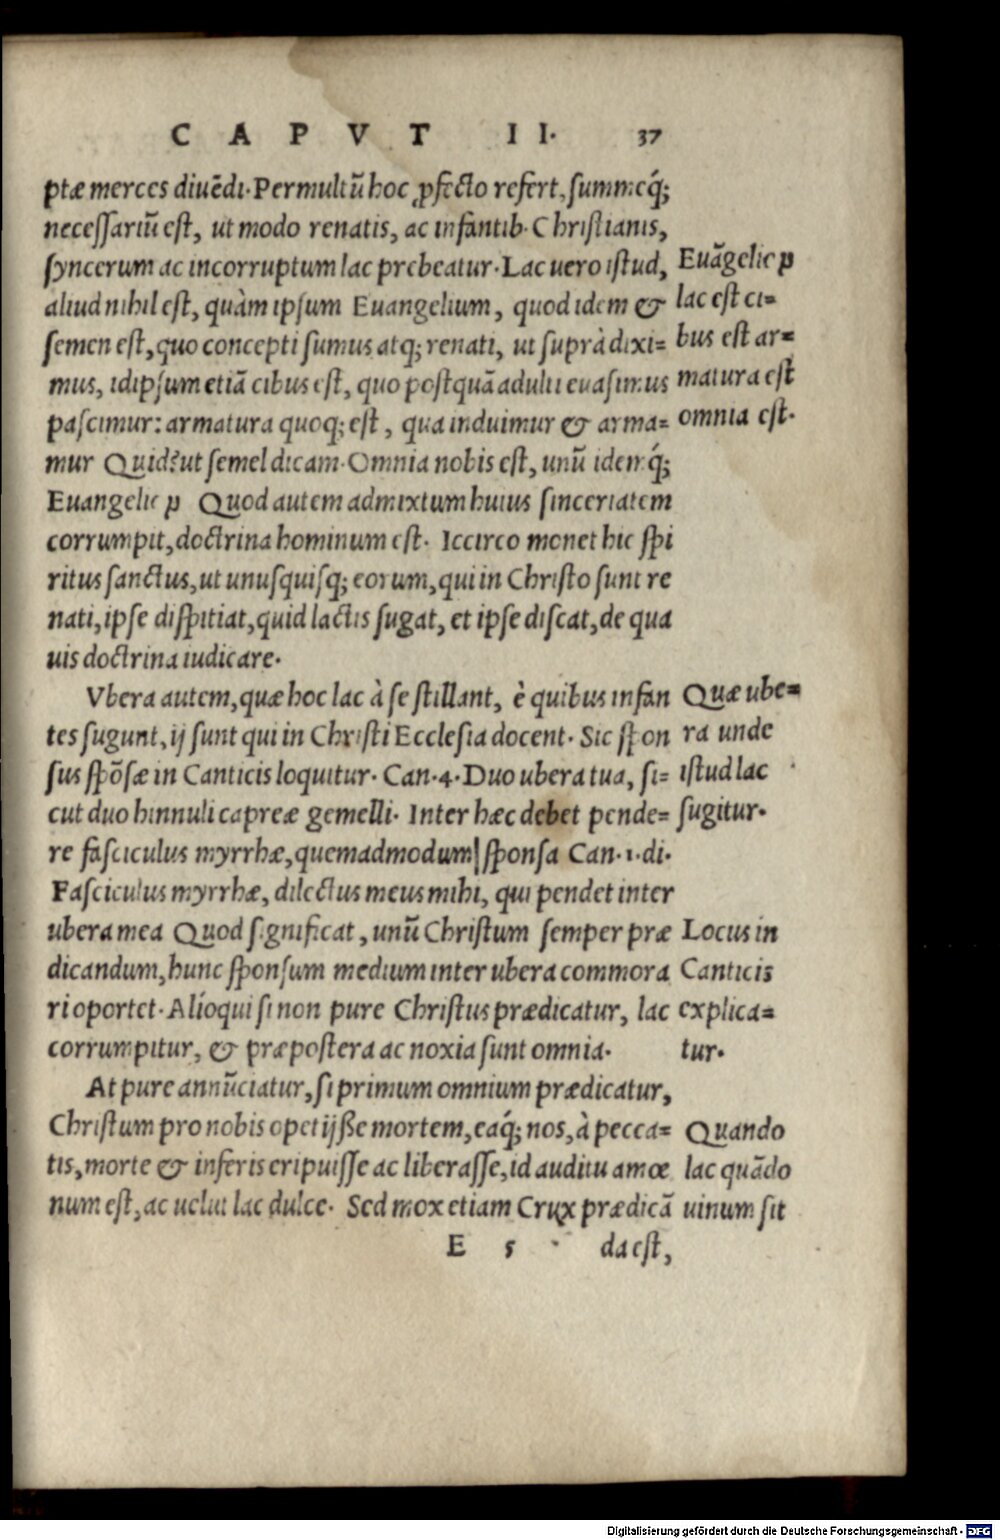 CAPVT II. 37
ptæ merces diuẽdi. Permultũ hoc ꝓfecto refert, summeq́;
necessariũ est, ut modo renatis, ac infantib. Christianis,
syncerum ac incorruptum lac prebeatur. Lac uero istud,
aliud nihil est, quàm ipsum Euangelium, quod idem &
semen est, quo concepti sumus atq; renati, ut suprà dixi=
mus, idipsum etiã cibus est, quo postquã adulti euasimus
pascimur: armatura quoq; est, qua induimur & arma=
mur Quid? ut semel dicam. Omnia nobis est, unũ idemq́;
Euangeliũ Quod autem admixtum huius sinceritatem
corrumpit, doctrina hominum est. Iccirco monet hic spi
ritus sanctus, ut unusquisq; eorum, qui in Christo sunt re
nati, ipse dispitiat, quid lactis sugat, et ipse discat, de qua
uis doctrina iudicare.
Euãgeliũ
lac est ci=
bus est ar=
matura est
omnia est.
Vbera autem, quæ hoc lac à se stillant, è quibus infan
tes sugunt, ij sunt qui in Christi Ecclesia docent. Sic spon
sus spõsæ in Canticis loquitur. Can. 4. Duo ubera tua, si=
cut duo hinnuli capreæ gemelli. Inter hæc debet pende=
re fasciculus myrrhæ, quemadmodum sponsa Can. 1. di.
Fasciculus myrrhæ, dilectus meus mihi, qui pendet inter
ubera mea Quod significat, unũ Christum semper præ
dicandum, hunc sponsum medium inter ubera commora
ri oportet. Alioqui si non pure Christus prædicatur, lac
corrumpitur, & præpostera ac noxia sunt omnia.
Quæ ube=
ra unde
istud lac
sugitur.
Locus in
Canticis
explica=
tur.
At pure annũciatur, si primum omnium prædicatur,
Christum pro nobis opetijße mortem, eaq́; nos, à pecca=
tis, morte & inferis eripuisse ac liberasse, id auditu amœ
num est, ac uelut lac dulce. Sed mox etiam Crux prædicã
Quando
lac quãdo
uinum sit
E 5 da est,
Digitalisierung gefördert durch die Deutsche Forschungsgemeinschaft - DFG